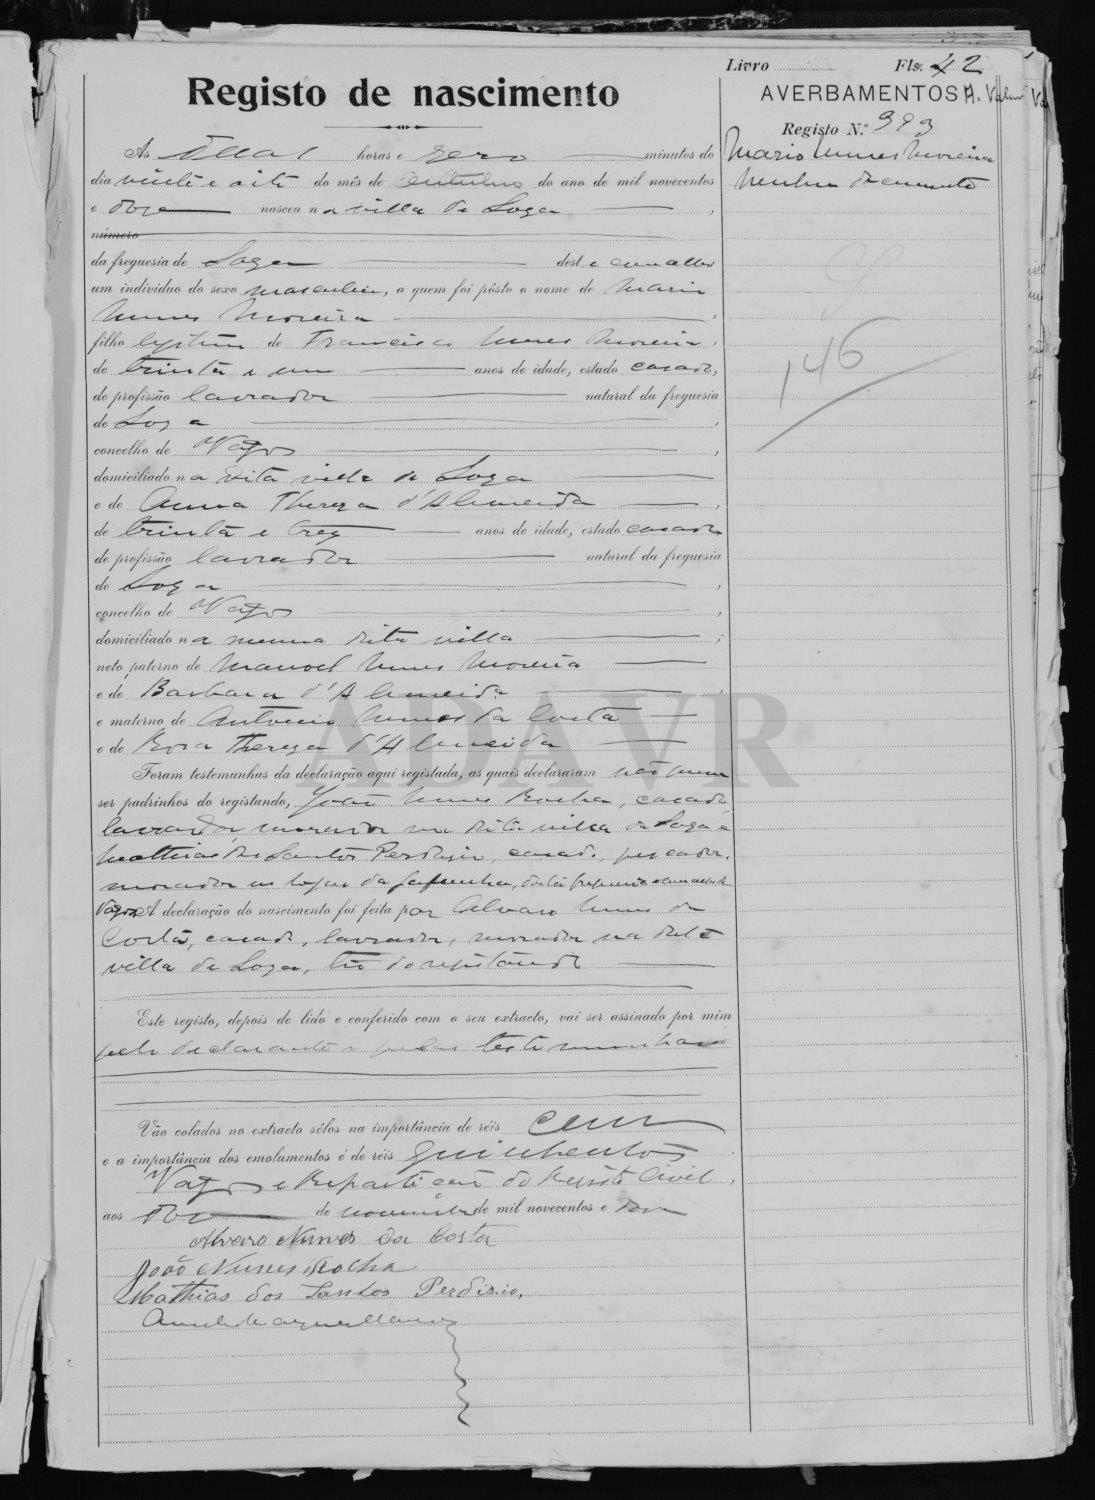 Livro Fls. 42
Registo de nascimento
AVERBAMENTOS
Registo N.º 393
Mario Nunes Moreira
Nenhum documento
146
As duas horas e zero minutos do
dia vinte e oito do mês de outubro do ano de mil novecentos
e doze nasceu na villa de Soza,
número
da freguesia de Soza deste concelho
um individuo do sexo masculino, a quem foi pôsto o nome de Mario
Nunes Moreira,
filho legitimo de Francisco Nunes Moreira,
de trinta e um anos de idade, estado casado,
de profissão lavrador natural da freguesia
de Soza,
concelho de Vagos,
domiciliado na dita villa de Soza
e de Anna Thereza d'Almeida,
de trinta e trez anos de idade, estado casada
de profissão lavradora natural da freguesia
de Soza,
concelho de Vagos,
domiciliado na mesma dita villa;
neto paterno de Manoel Nunes Moreira
e de Barbara d'Almeida,
e materno de Antonio Nunes da Costa
e de Rosa Thereza d'Almeida
Foram testemunhas da declaração aqui registada, as quais declararam não
ser padrinhos do registando, João Nunes Rocha, casado
lavrador, morador na dita villa de Soza e
Mathias dos Santos Perdizio, casado, pescador,
morador no logar da Gafanha, desta freguesia e concelho de
Vagos A declaração do nascimento foi feita por Alvaro Nunes da
Costa, casado, lavrador, morador na dita
villa de Soza, tio do registando
Este registo, depois de lido e conferido com o seu extracto, vai ser assinado por mim
pelo declarante e pelas testemunhas
Vão colados no extracto sêlos na importância de réis cem
e a importância dos emolumentos é de réis quinhentos
Vagos e Repartição do Registo Civil,
aos doze de novembro de mil novecentos e doze
Alvaro Nunes da Costa
João Nunes Rocha
Mathias dos Santos Perdizio,
ADAVR